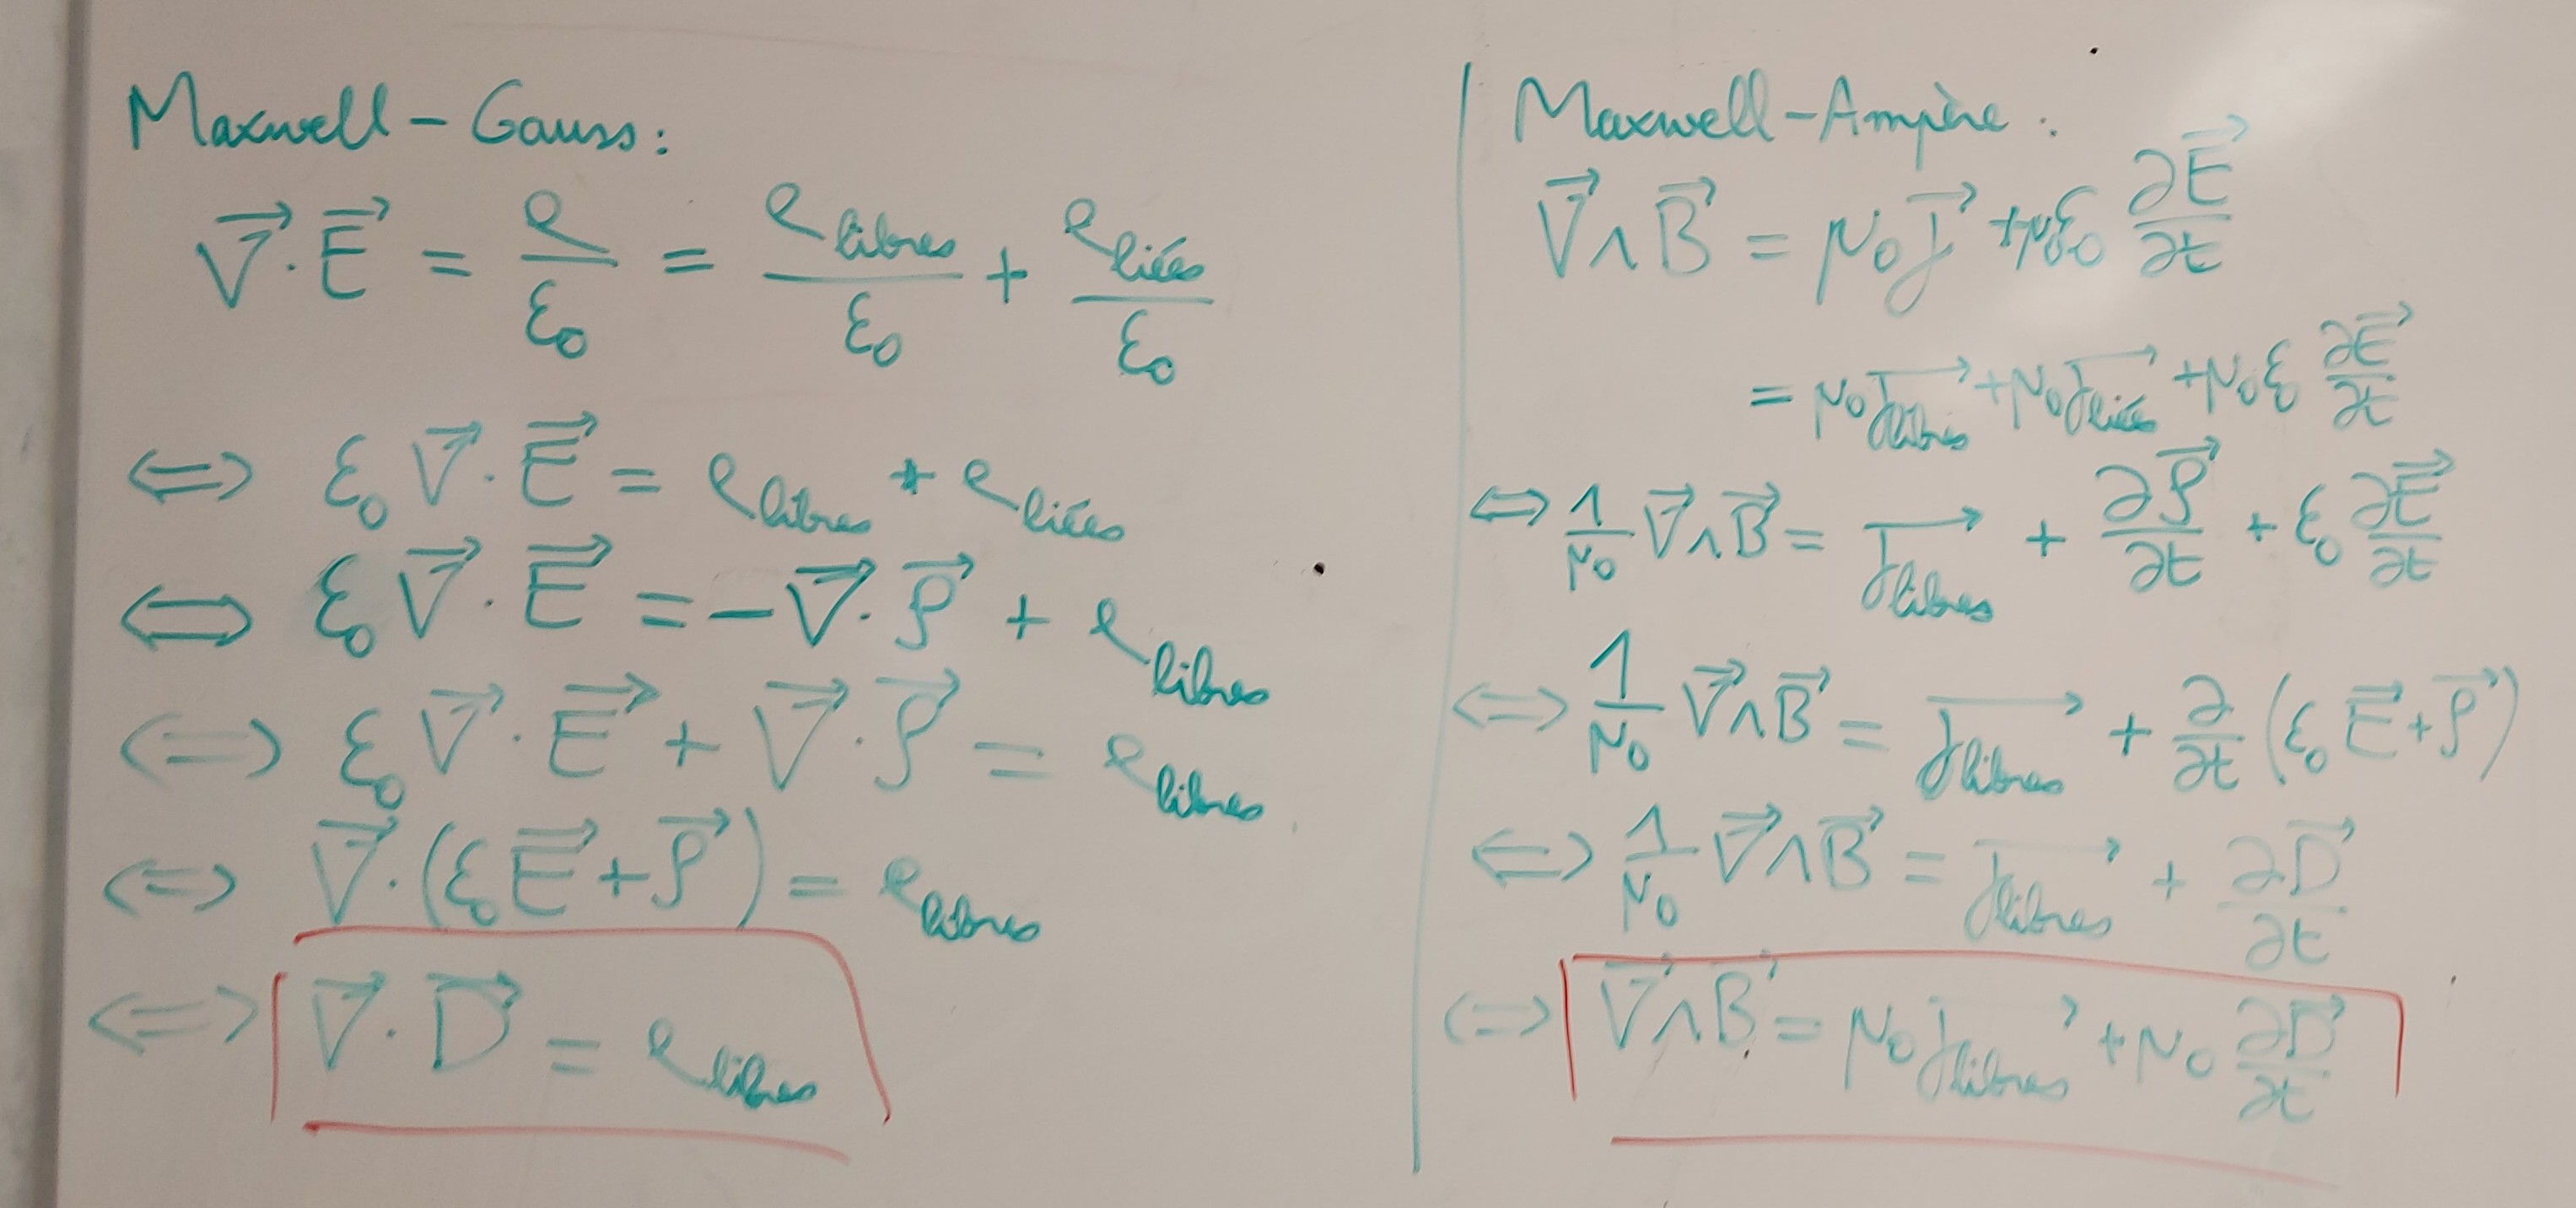 Maxwell-Gauss:
∇⃗·E⃗ = ρ/ε₀ = ρ_libres/ε₀ + ρ_liées/ε₀
⟺ ε₀ ∇⃗·E⃗ = ρ_libres + ρ_liées
⟺ ε₀ ∇⃗·E⃗ = -∇⃗·P⃗ + ρ_libres
⟺ ε₀ ∇⃗·E⃗ + ∇⃗·P⃗ = ρ_libres
⟺ ∇⃗·(ε₀E⃗ + P⃗) = ρ_libres
⟺ ∇⃗·D⃗ = ρ_libres
Maxwell-Ampère:
∇⃗∧B⃗ = μ₀ j⃗ + μ₀ε₀ ∂E⃗/∂t
= μ₀ j⃗_libres + μ₀ j⃗_liées + μ₀ε ∂E⃗/∂t
⟺ 1/μ₀ ∇⃗∧B⃗ = j⃗_libres + ∂P⃗/∂t + ε₀ ∂E⃗/∂t
⟺ 1/μ₀ ∇⃗∧B⃗ = j⃗_libres + ∂/∂t (ε₀E⃗ + P⃗)
⟺ 1/μ₀ ∇⃗∧B⃗ = j⃗_libres + ∂D⃗/∂t
⟺ ∇⃗∧B⃗ = μ₀ j⃗_libres + μ₀ ∂D⃗/∂t